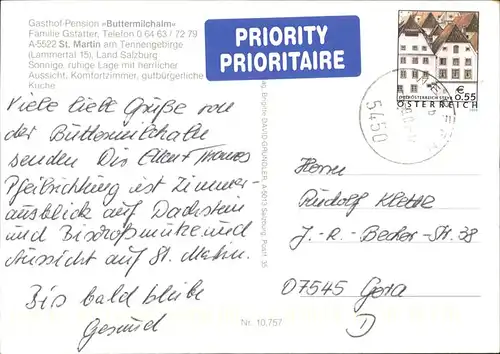 Gasthof-Pension »Buttermilchalm«
Familie Gstatter, Telefon 0 64 63 / 72 79
A-5522 St. Martin am Tennengebirge
(Lammertal 15), Land Salzburg
Sonnige, ruhige Lage mit herrlicher
Aussicht, Komfortzimmer, gutbürgerliche
Küche
PRIORITY
PRIORITAIRE
€ 0,55
ÖSTERREICH
5450
Viele liebe Grüße von
der Buttermilchalm
senden Dir Thomas
Pfeilrichtung ist Zimmer-
ausblick auf Dachstein
und Bischofsmütze und
Aussicht auf St. Martin.
Bis bald bleibe
Gesund
Verlag Brigitte DAVID-GRÜNDLER, A-5013 Salzburg, Postf. 35
Nr. 10.757
Herrn
Rudolf
J.-R.-Becher-St. 38
07545 Gera
D